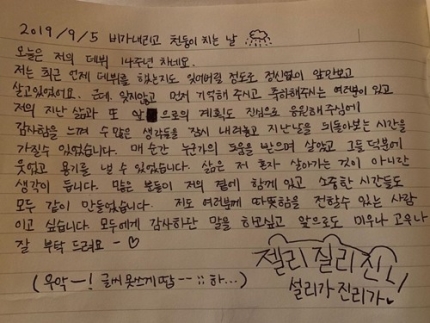 2019/9/5 비가내리고 천둥이 치는 날
오늘은 저의 데뷔 14주년 차네요.
저는 최근 언제 데뷔를 했는지도 잊어버릴 정도로 정신없이 앞만보고
살고있었어요. 근데. 잊지않고 먼저 기억해 주시고 축하해주시는 여러분이 있고
저의 지난 삶과 또 앞으로의 계획도 진심으로 응원해 주심에
감사함을 느껴 수 많은 생각들을 잠시 내려놓고 지난날을 되돌아보는 시간을
가질수 있었습니다. 매 순간 누군가의 도움을 받으며 살았고 그들 덕분에
웃었고 용기를 낼 수 있었습니다. 삶은 저 혼자 살아가는 것이 아니란
생각이 듭니다. 많은 분들이 저의 곁에 함께 있고 소중한 시간들도
모두 같이 만들었습니다. 저도 여러분께 따뜻함을 전할수 있는 사람
이고 싶습니다. 모두에게 감사하단 말을 하고싶고 앞으로도 미우나 고우나
잘 부탁 드려요 - ♡
(우악-! 글씨 못쓰게땁--;; 하...)
젤리 질리 진니
설리가 진리가♡